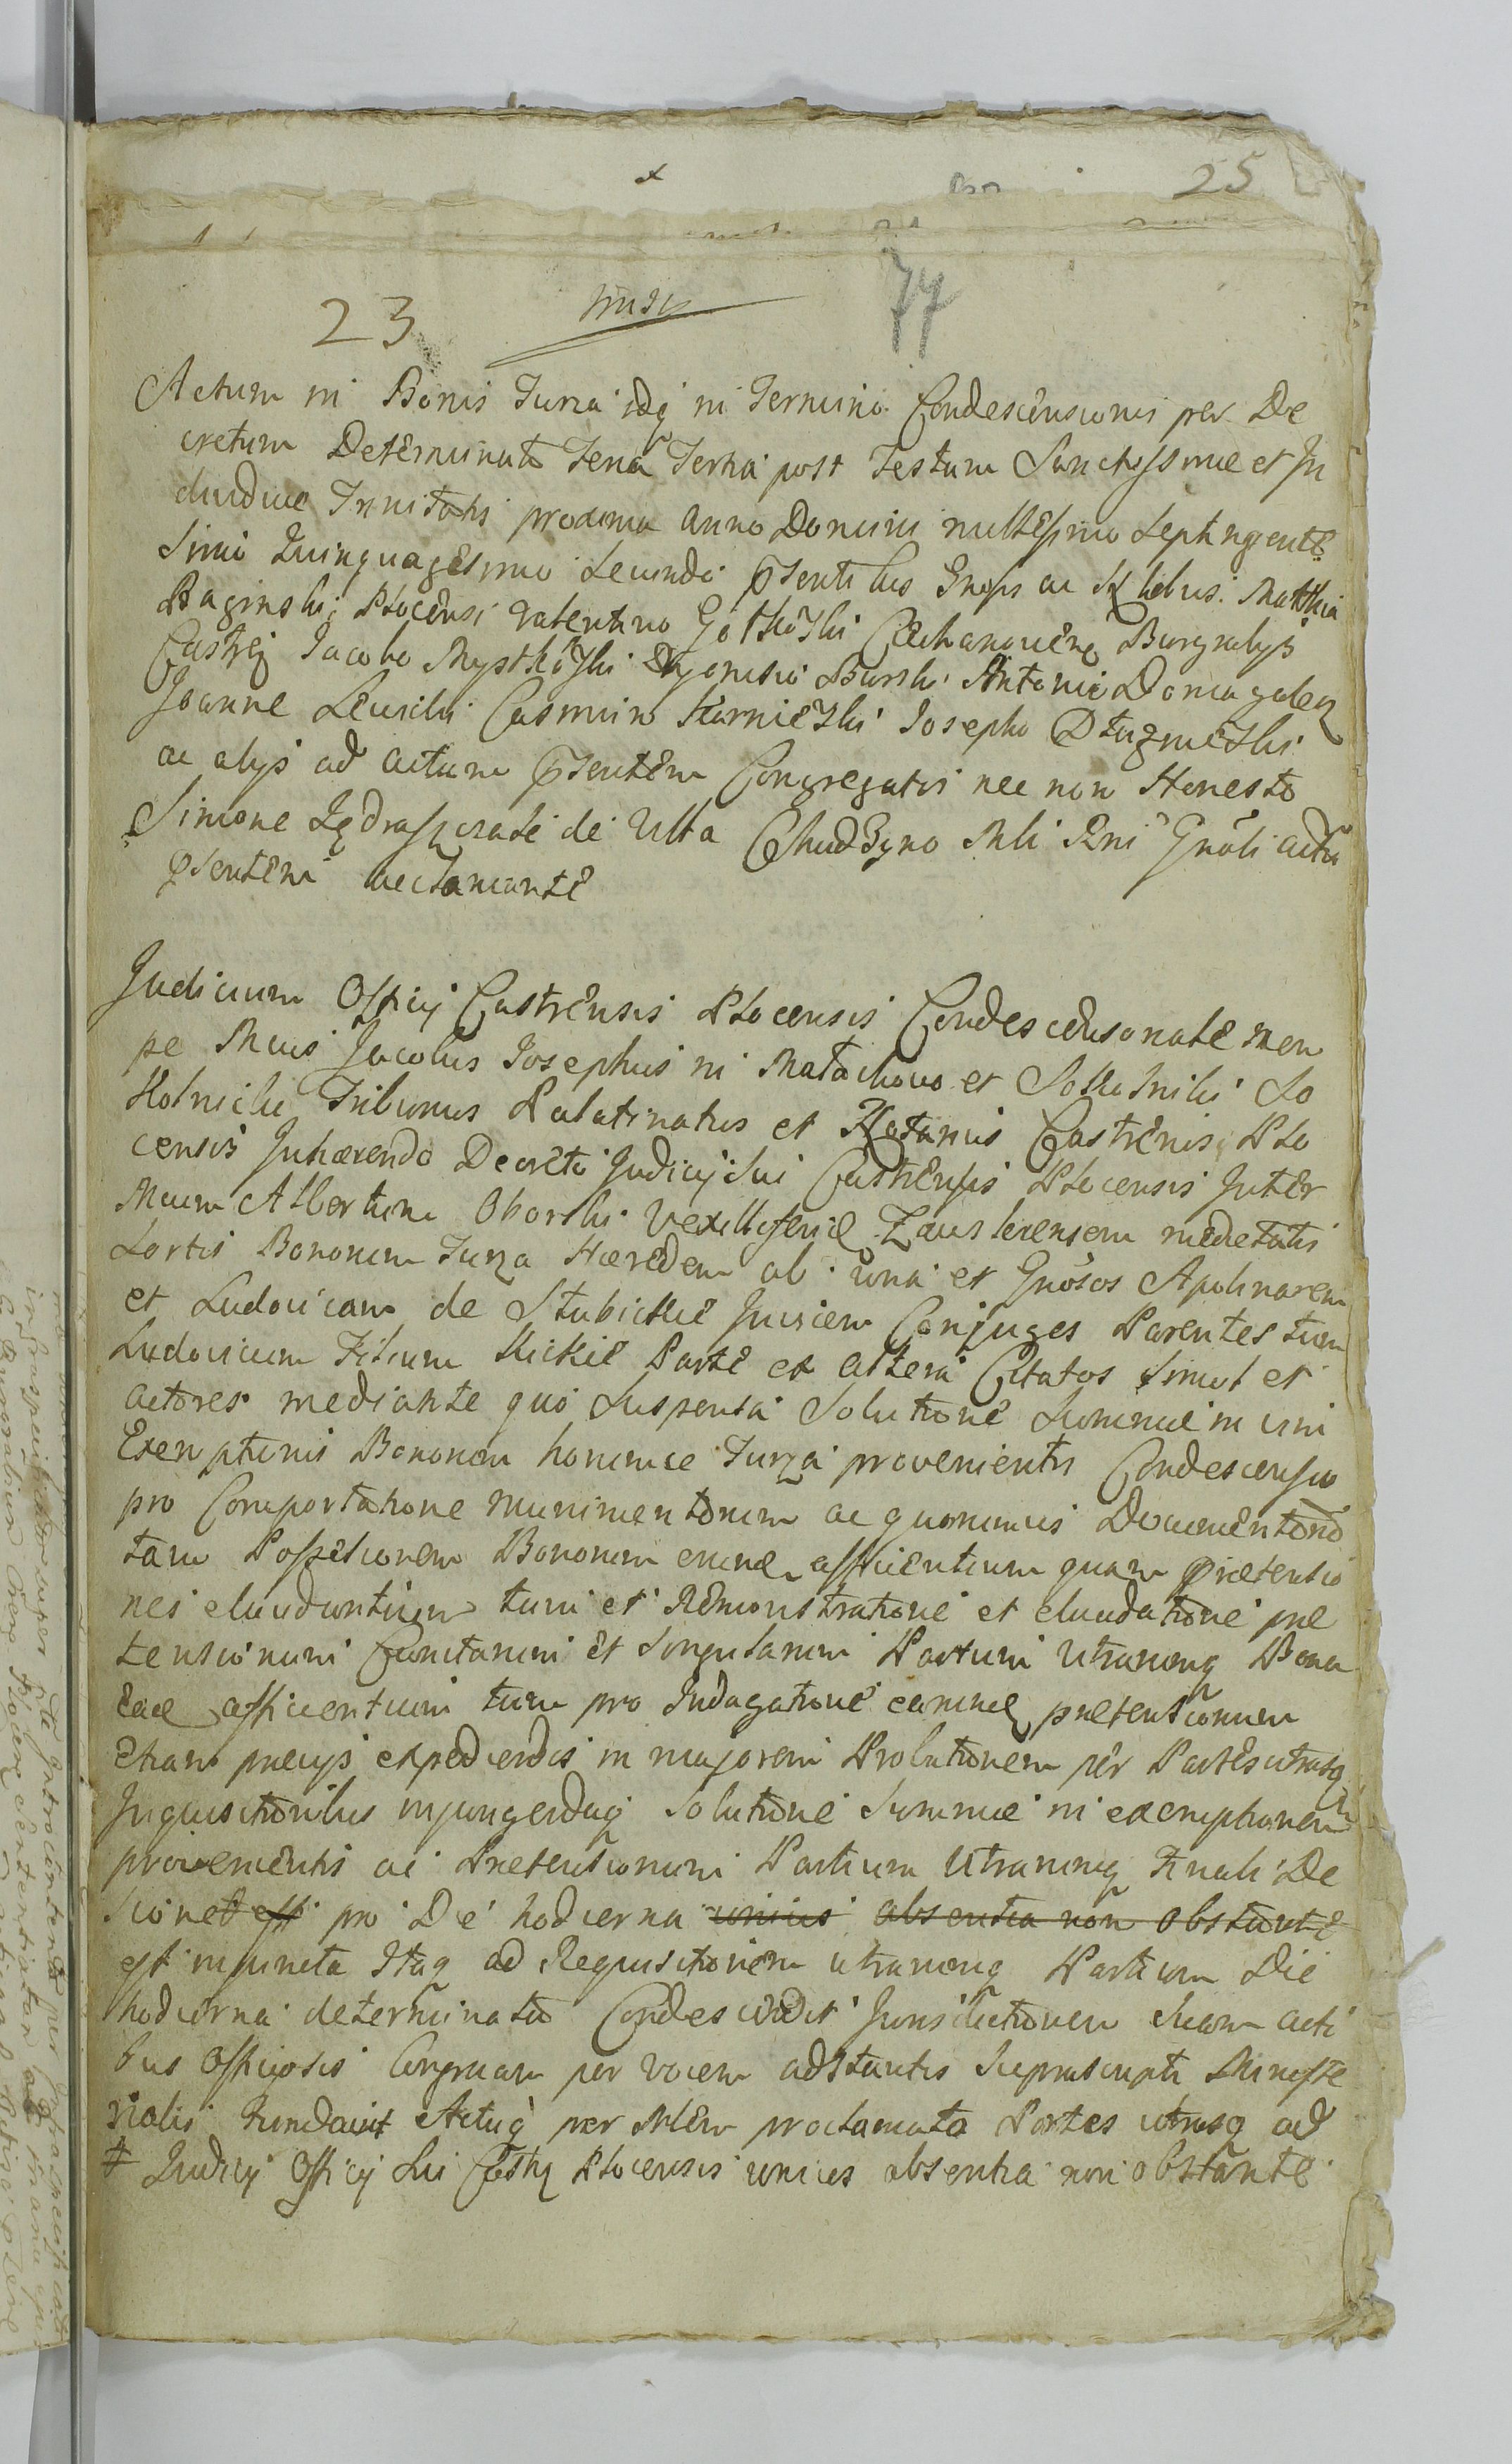 25
23
77
Actum in Bonis Turza idq in Termino Condescensionis per De
cretum Determinato Feria Tertia post Festum Sanctissimae et In
dividuae Trinitatis proxima Anno Domini millesimo Septingente
simo Quinquagesimo Secundo Psentibus Gnosis ac Nobilibus Matthia
Raginski Plocensi Valentino Gotkowski Ciechanoviens Burgrabys
Castrej Jacobo Mystkowski Dyonisio Burski Antonio Domagalen
Joanne Lewicki Casimiro Karniewski Josepho Dłuzniewski
ac alys ad actum Psentem Congregatis nec non Honesto
Simone de Villa Chudzyno Mli Rni Gnali actu
psentem acclamante
Judicium Officij Castrensis Plocensis Condescensionale nem
pe Mcus Jacobus Josephus in Małachowo et Sokolniki So
kolnicki Tribunus Palatinatus et Notarius Castrensis Plo
censis Inhaerendo Decreto Judicij Sui Castrensis Plocensis Inter
Mcum Albertum Oborski Vexilliferid Zauskrensem medietatis
Sortis Bonorum Turza Haeredem ab una et Gnosos Apolinarem
et Ludovicam de Stubickie Conjuges Parentes tum
Ludovicum Filium Kickie Parte ex altera Citatos simul et
actores mediante quo suspensa Solutione Summae in vim
Exemptionis Bonorum honimae Turza provenientis Condescensio
pro Comportatione munimentorum ac quorumvis Documentoro
tam Possesionem Bonorum eorund afficientium quam Praetensio
nes elucidantium tum et Remonstratione et elucidatione prae
tensionum Cunctarum et Singularum Partium Utrarumq Bona
ead afficientium tum pro Indagatione earund praetensionum
etiam praevys expediendis in majorem Probationem per Partes utrasq
Inquisitionibus injungendaq Solutione Summae in exemptionem
provenientis ac Praetensionum Partium Utrarumq Finali De
cisione pro Die hodierna unius absentia non obstante
est injuncta Itaq ad Requisitionem utrarumq Partium Die
hodierna determinato Condescendit Jurisdictionem suam acti
bus Officiosis Congruam per vocem adstantis Suprascripti Ministe
rialis Fundavit Actuq per Mlem proclamato Partes utrasq ad
‡ Judicij Officij Sui Castrs Plocensis unius absentia non obstante